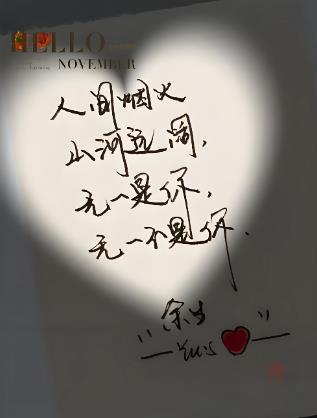 HELLO
NOVEMBER
人间烟火
山河远阔,
无一是你,
无一不是你.
"余生
Yu's"